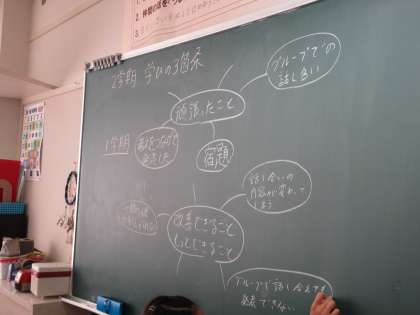 2学期 学びの3箇条
グループでの
話し合い
頑張ったこと
1学期
宿題
話し合いの
内容が変わって
しまう
改善できること
もっとできること
グループで話し合えても
発表できない